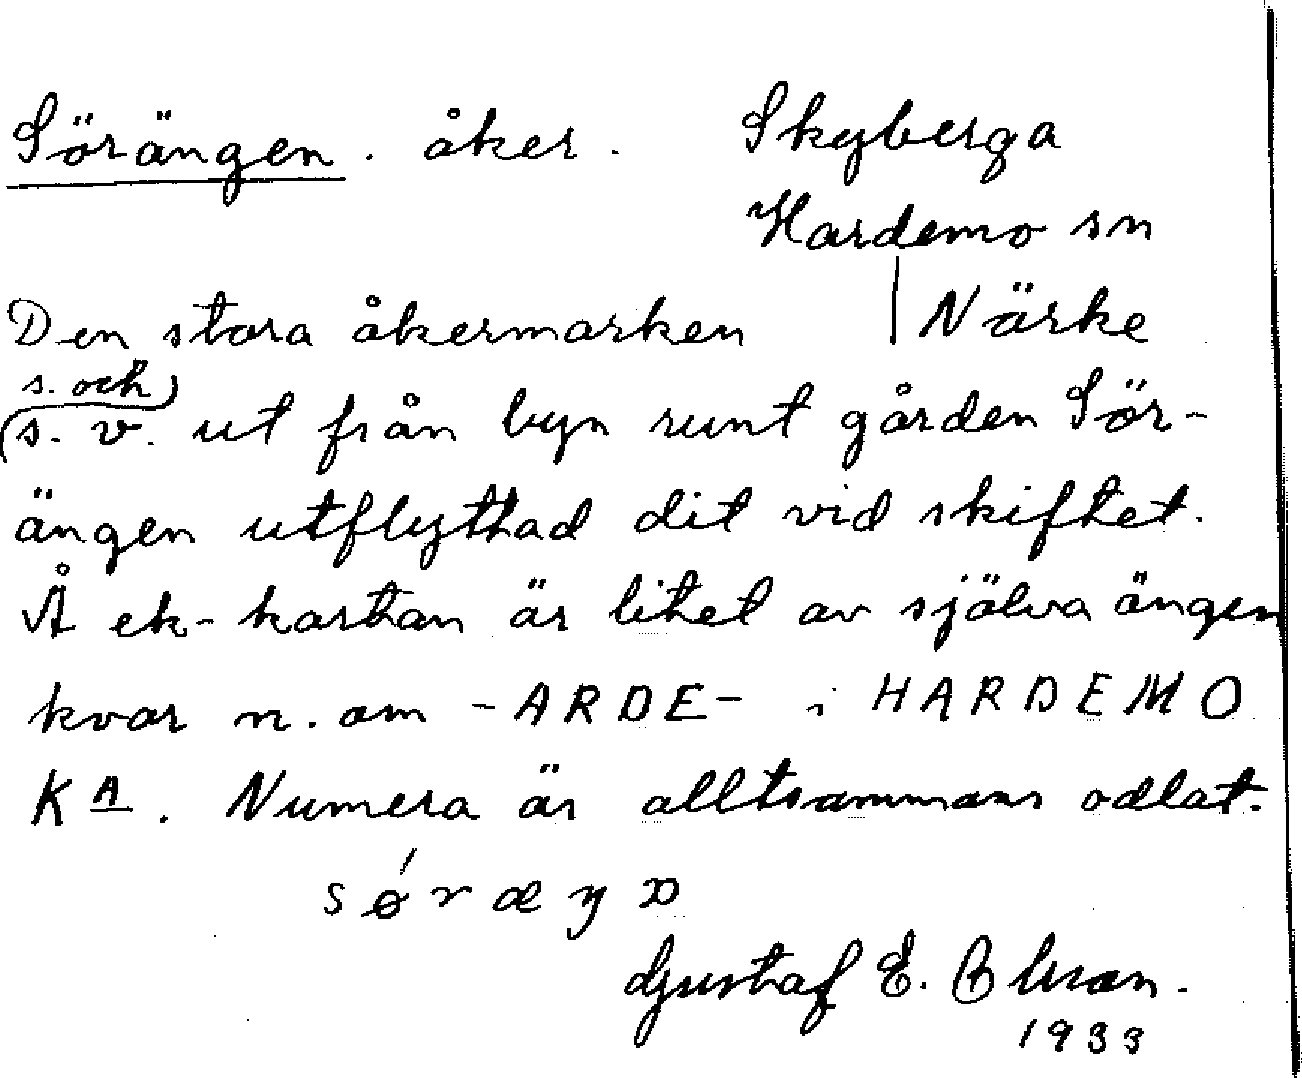 Sörängen. åker. Skyberga
Hardemo sn
Den stora åkermarken | Närke
s. och
s. v. ut från byn runt gården Sör-
ängen utflyttad dit vid skiftet.
Å ek-kartan är litet av själva ängen
kvar n. om -ARDE- i HARDEMO
KA. Numera är alltsammans odlat.
Gustaf E. Olsson.
1933